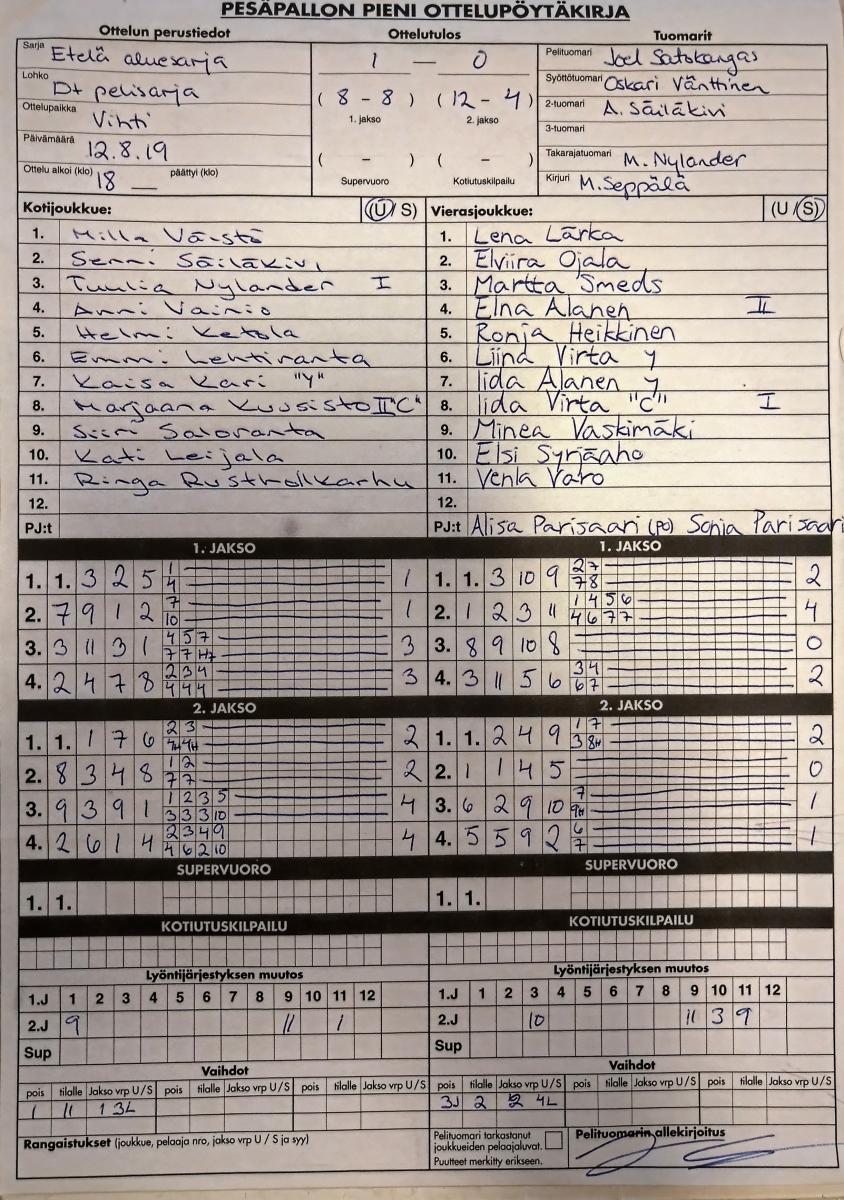 PESÄPALLON PIENI OTTELUPÖYTÄKIRJA
Ottelun perustiedot Ottelutulos Tuomarit
Sarja Etelä aluesarja
Lohko D+ pelisarja
Ottelupaikka Vihti
Päivämäärä 12.8.19
Ottelu alkoi (klo) 18 — päättyi (klo)
1 — 0
( 8 - 8 ) ( 12 - 4 )
1. jakso 2. jakso
( - ) ( - )
Supervuoro Kotiutuskilpailu
Pelituomari Joel Satokangas
Syöttötuomari Oskari Vänttinen
2-tuomari A. Säiläkivi
3-tuomari
Takarajatuomari M. Nylander
Kirjuri M. Seppälä
Kotijoukkue: (U/S)
1. Milla Väistö
2. Senni Säiläkivi
3. Tuulia Nylander I
4. Anni Vainio
5. Helmi Ketola
6. Emmi Lehtiranta
7. Kaisa Kari "Y"
8. Marjaana Kuusisto II "C"
9. Siiri Saloranta
10. Kati Leijala
11. Ringa
12.
PJ:t
Vierasjoukkue: (U/S)
1. Lena Lärka
2. Elviira Ojala
3. Martta Smeds
4. Elna Alanen II
5. Ronja Heikkinen
6. Liina Virta y
7. Iida Alanen y
8. Iida Virta "C" I
9. Minea Vaskimäki
10. Elsi Syrjäaho
11. Venla Varo
12.
PJ:t Alisa Parisaari (PO) Sonja Parisaari
1. JAKSO
1. 1. 3 2 5 1 1
4
2. 7 9 1 2 7 1
10
3. 3 11 3 1 4 5 7 3
7 7 H7
4. 2 4 7 8 2 3 4 3
4 4 4
2. JAKSO
1. 1. 1 7 6 2 3 2
4H 4H
2. 8 3 4 8 1 2 2
7 7
3. 9 3 9 1 1 2 3 5 4
3 3 3 10
4. 2 6 1 4 2 3 4 9 4
4 6 2 10
SUPERVUORO
1. 1.
KOTIUTUSKILPAILU
1. JAKSO
1. 1. 3 10 9 2 7 2
7 8
2. 1 2 3 11 1 4 5 6 4
4 6 7 7
3. 8 9 10 8 0
4. 3 11 5 6 3 4 2
6 7
2. JAKSO
1. 1. 2 4 9 1 7 2
3 8H
2. 1 1 4 5 0
3. 6 2 9 10 7 1
9H
4. 5 5 9 2 6 1
7
SUPERVUORO
1. 1.
KOTIUTUSKILPAILU
Lyöntijärjestyksen muutos
1.J 1 2 3 4 5 6 7 8 9 10 11 12
2.J 9 11 1
Sup
Vaihdot
pois tilalle Jakso vrp U/S pois tilalle Jakso vrp U/S pois tilalle Jakso vrp U/S
1 11 1 3L
Rangaistukset (joukkue, pelaaja nro, jakso vrp U / S ja syy)
Lyöntijärjestyksen muutos
1.J 1 2 3 4 5 6 7 8 9 10 11 12
2.J 10 11 3 9
Sup
Vaihdot
pois tilalle Jakso vrp U/S pois tilalle Jakso vrp U/S pois tilalle Jakso vrp U/S
3J 2 4L
Pelituomari tarkastanut
joukkueiden pelaajaluvat.
Puutteet merkitty erikseen.
Pelituomarin allekirjoitus